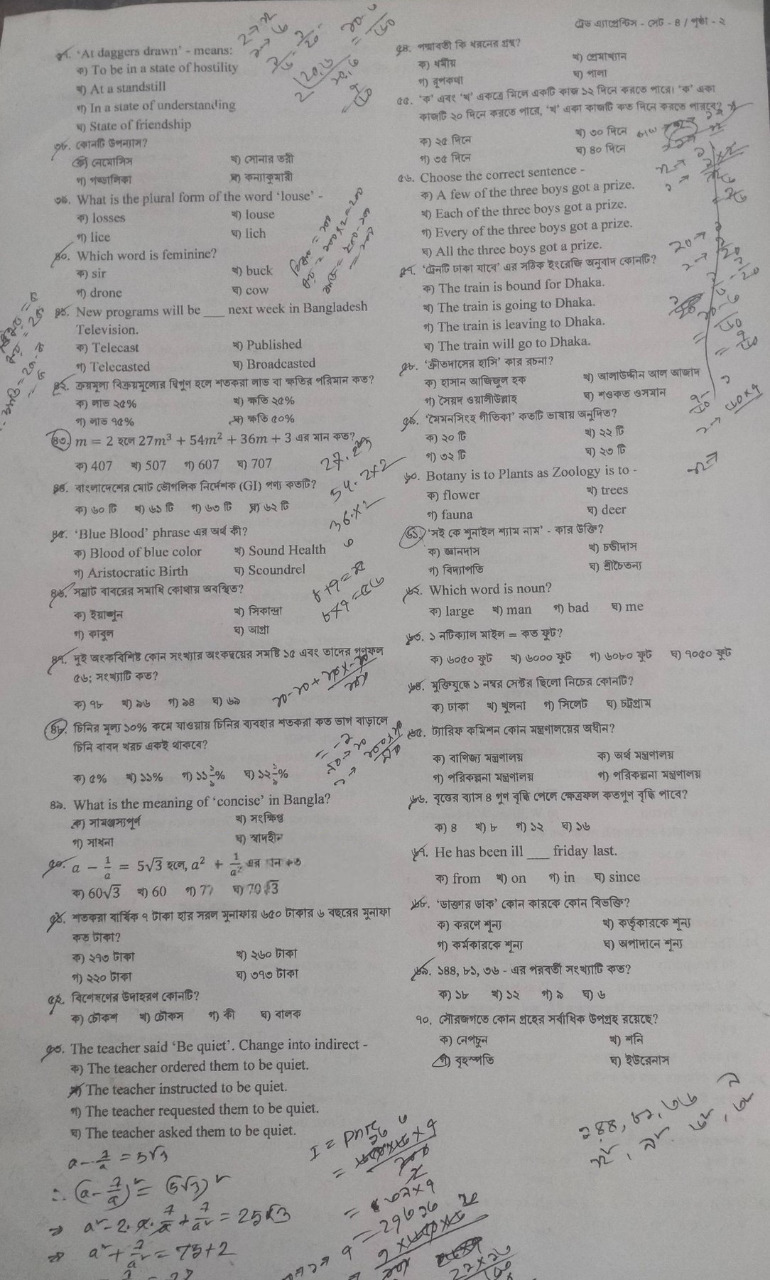 ট্রেড এ্যাপ্রেন্টিস - সেট - ৪ / পৃষ্ঠা - ২
৩৭. ‘At daggers drawn’ - means:
ক) To be in a state of hostility
খ) At a standstill
গ) In a state of understanding
ঘ) State of friendship
৩৮. কোনটি উপন্যাস?
ক) নেমেসিস খ) সোনার তরী
গ) পথ্যালিকা ঘ) কন্যাকুমারী
৩৯. What is the plural form of the word ‘louse’ -
ক) losses খ) louse
গ) lice ঘ) lich
৪০. Which word is feminine?
ক) sir খ) buck
গ) drone ঘ) cow
৪১. New programs will be ___ next week in Bangladesh
Television.
ক) Telecast খ) Published
গ) Telecasted ঘ) Broadcasted
৪২. ক্রয়মূল্য বিক্রয়মূল্যের দ্বিগুণ হলে শতকরা লাভ বা ক্ষতির পরিমান কত?
ক) লাভ ২৫% খ) ক্ষতি ২৫%
গ) লাভ ৭৫% ঘ) ক্ষতি ৫০%
৪৩. m = 2 হলে 27m³ + 54m² + 36m + 3 এর মান কত?
ক) 407 খ) 507 গ) 607 ঘ) 707
৪৪. বাংলাদেশের মোট ভৌগলিক নির্দেশক (GI) পণ্য কতটি?
ক) ৬০ টি খ) ৬১ টি গ) ৬৩ টি ঘ) ৬২ টি
৪৫. ‘Blue Blood’ phrase এর অর্থ কী?
ক) Blood of blue color খ) Sound Health
গ) Aristocratic Birth ঘ) Scoundrel
৪৬. সম্রাট বাবরের সমাধি কোথায় অবস্থিত?
ক) ইয়াঙ্গুন খ) সিকান্দ্রা
গ) কাবুল ঘ) আগ্রা
৪৭. দুই অংকবিশিষ্ট কোন সংখ্যার অংকদ্বয়ের সমষ্টি ১৫ এবং তাদের গুণফল
৫৬; সংখ্যাটি কত?
ক) ৭৮ খ) ৯৬ গ) ৯৪ ঘ) ৬৯
৪৮. চিনির মূল্য ১০% কমে যাওয়ায় চিনির ব্যবহার শতকরা কত ভাগ বাড়ালে
চিনি বাবদ খরচ একই থাকবে?
ক) ৫% খ) ১১% গ) ১১ ১/৯% ঘ) ১২ ১/২%
৪৯. What is the meaning of ‘concise’ in Bangla?
ক) সামঞ্জস্যপূর্ণ খ) সংক্ষিপ্ত
গ) সাধনা ঘ) স্বাদহীন
৫০. a − 1/a = 5√3 হলে, a² + 1/a² এর মান কত
ক) 60√3 খ) 60 গ) 77 ঘ) 70√3
৫১. শতকরা বার্ষিক ৭ টাকা হার সরল মুনাফায় ৬৫০ টাকার ৬ বছরের মুনাফা
কত টাকা?
ক) ২৭৩ টাকা খ) ২৬০ টাকা
গ) ২২০ টাকা ঘ) ৩৭৩ টাকা
৫২. বিশেষণের উদাহরণ কোনটি?
ক) চৌকশ খ) চৌকস গ) কী ঘ) বালক
৫৩. The teacher said ‘Be quiet’. Change into indirect -
ক) The teacher ordered them to be quiet.
খ) The teacher instructed to be quiet.
গ) The teacher requested them to be quiet.
ঘ) The teacher asked them to be quiet.
a − 1/a = 5√3
∴ (a − 1/a)² = (5√3)²
a² + 1/a² = 75+2
৫৪. পদ্মাবতী কি ধরনের গ্রন্থ?
ক) ধর্মীয় খ) প্রেমাখ্যান
গ) রূপকথা ঘ) পালা
৫৫. ‘ক’ এবং ‘খ’ একত্রে মিলে একটি কাজ ১২ দিনে করতে পারে। ‘ক’ একা
কাজটি ২০ দিনে করতে পারে, ‘খ’ একা কাজটি কত দিনে করতে পারবে?
ক) ২৫ দিনে খ) ৩০ দিনে
গ) ৩৫ দিনে ঘ) ৪০ দিনে
৫৬. Choose the correct sentence -
ক) A few of the three boys got a prize.
খ) Each of the three boys got a prize.
গ) Every of the three boys got a prize.
ঘ) All the three boys got a prize.
৫৭. ‘ট্রেনটি ঢাকা যাবে’ এর সঠিক ইংরেজি অনুবাদ কোনটি?
ক) The train is bound for Dhaka.
খ) The train is going to Dhaka.
গ) The train is leaving to Dhaka.
ঘ) The train will go to Dhaka.
৫৮. ‘ক্রীতদাসের হাসি’ কার রচনা?
ক) হাসান আজিজুল হক খ) আলাউদ্দীন আল আজাদ
গ) সৈয়দ ওয়ালীউল্লাহ ঘ) শওকত ওসমান
৫৯. ‘মৈমনসিংহ গীতিকা’ কতটি ভাষায় অনূদিত?
ক) ২০ টি খ) ২২ টি
গ) ৩২ টি ঘ) ২৩ টি
৬০. Botany is to Plants as Zoology is to -
ক) flower খ) trees
গ) fauna ঘ) deer
৬১. ‘সই কে শুনাইল শ্যাম নাম’ - কার উক্তি?
ক) জ্ঞানদাস খ) চন্ডীদাস
গ) বিদ্যাপতি ঘ) শ্রীচৈতন্য
৬২. Which word is noun?
ক) large খ) man গ) bad ঘ) me
৬৩. ১ নটিক্যাল মাইল = কত ফুট?
ক) ৬০৫০ ফুট খ) ৬০০০ ফুট গ) ৬০৮০ ফুট ঘ) ৭০৫০ ফুট
৬৪. মুক্তিযুদ্ধে ১ নম্বর সেক্টর ছিলো নিচের কোনটি?
ক) ঢাকা খ) খুলনা গ) সিলেট ঘ) চট্টগ্রাম
৬৫. ট্যারিফ কমিশন কোন মন্ত্রণালয়ের অধীন?
ক) বাণিজ্য মন্ত্রণালয় ক) অর্থ মন্ত্রণালয়
গ) পরিকল্পনা মন্ত্রণালয় গ) পরিকল্পনা মন্ত্রণালয়
৬৬. বৃত্তের ব্যাস ৪ গুণ বৃদ্ধি পেলে ক্ষেত্রফল কতগুণ বৃদ্ধি পাবে?
ক) ৪ খ) ৮ গ) ১২ ঘ) ১৬
৬৭. He has been ill ___ friday last.
ক) from খ) on গ) in ঘ) since
৬৮. ‘ডাক্তার ডাক’ কোন কারকে কোন বিভক্তি?
ক) করণে শূন্য খ) কর্তৃকারকে শূন্য
গ) কর্মকারকে শূন্য ঘ) অপাদানে শূন্য
৬৯. ১৪৪, ৮১, ৩৬ - এর পরবর্তী সংখ্যাটি কত?
ক) ১৮ খ) ১২ গ) ৯ ঘ) ৬
৭০. সৌরজগতে কোন গ্রহের সর্বাধিক উপগ্রহ রয়েছে?
ক) নেপচুন খ) শনি
গ) বৃহস্পতি ঘ) ইউরেনাস